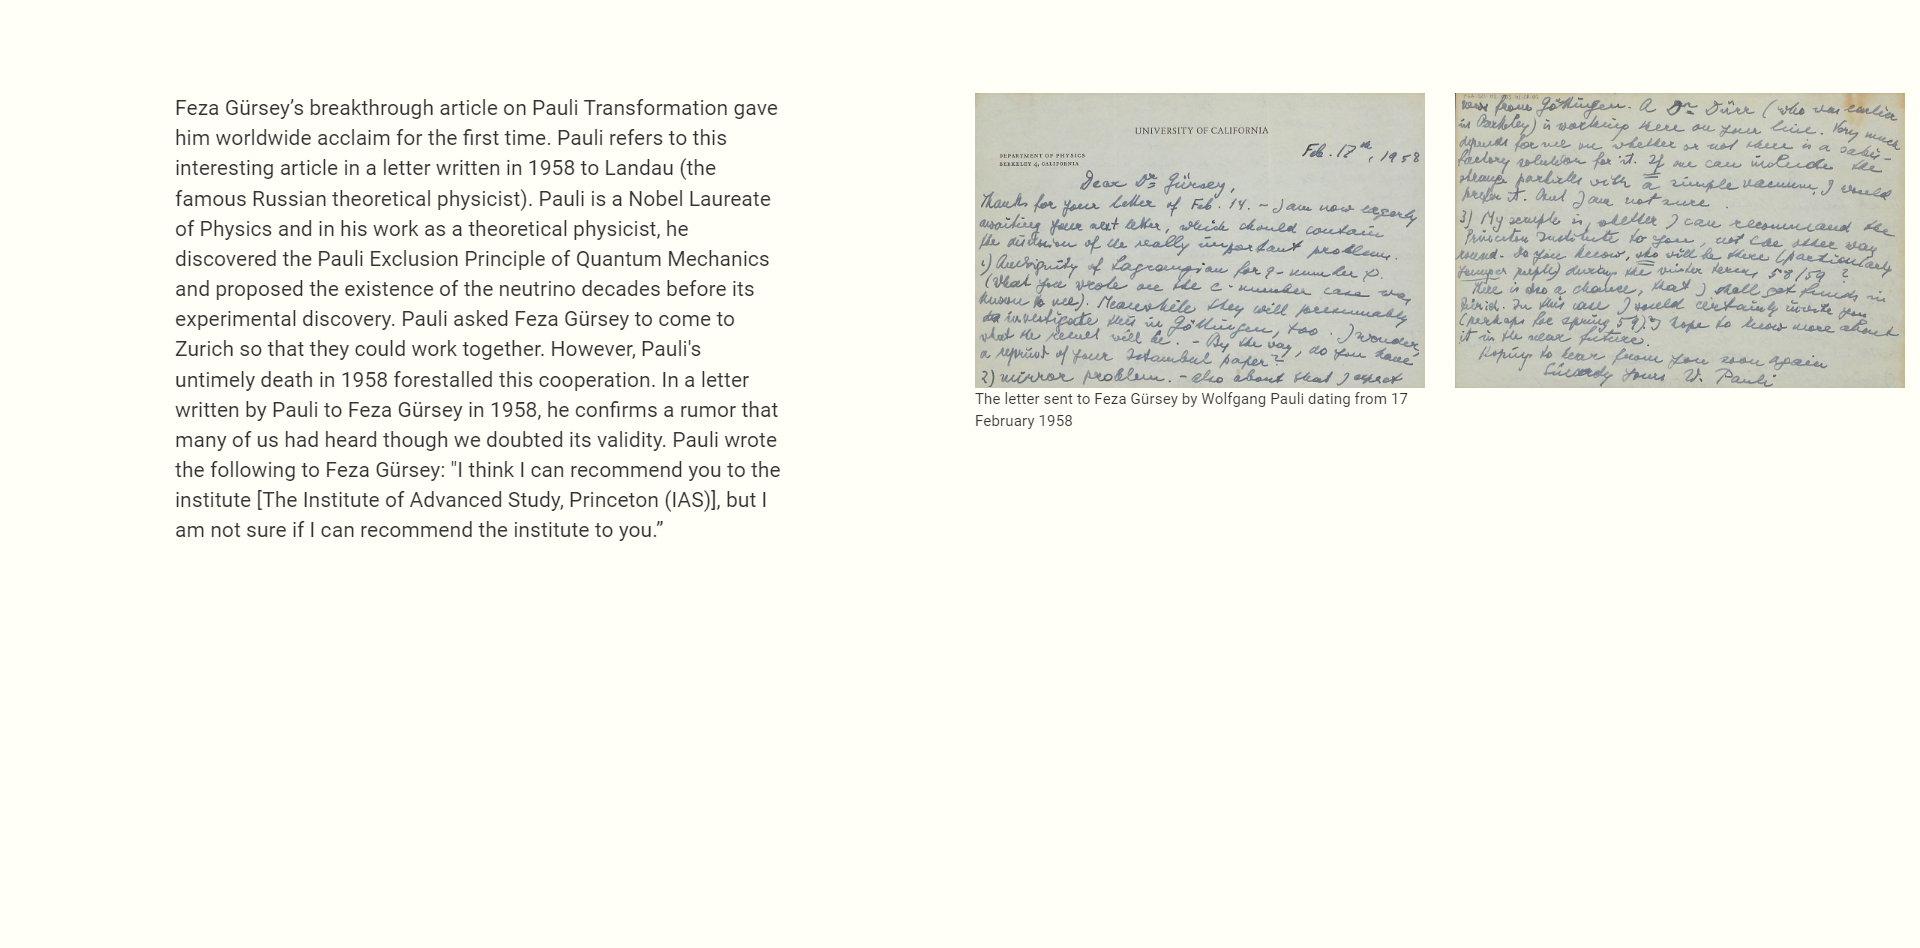 Feza Gürsey’s breakthrough article on Pauli Transformation gave
him worldwide acclaim for the first time. Pauli refers to this
interesting article in a letter written in 1958 to Landau (the
famous Russian theoretical physicist). Pauli is a Nobel Laureate
of Physics and in his work as a theoretical physicist, he
discovered the Pauli Exclusion Principle of Quantum Mechanics
and proposed the existence of the neutrino decades before its
experimental discovery. Pauli asked Feza Gürsey to come to
Zurich so that they could work together. However, Pauli's
untimely death in 1958 forestalled this cooperation. In a letter
written by Pauli to Feza Gürsey in 1958, he confirms a rumor that
many of us had heard though we doubted its validity. Pauli wrote
the following to Feza Gürsey: "I think I can recommend you to the
institute [The Institute of Advanced Study, Princeton (IAS)], but I
am not sure if I can recommend the institute to you.”
UNIVERSITY OF CALIFORNIA
DEPARTMENT OF PHYSICS
BERKELEY 4, CALIFORNIA
Feb. 17th, 1958
Dear Dr Gürsey,
Thanks for your letter of Feb. 14. – I am now eagerly
awaiting your next letter, which should contain
the discussion of the really important problems.
1) Ambiguity of Lagrangian for q-number
(What you wrote on the c-number case was
known to me). Meanwhile they will presumably
investigate this in Göttingen, too. I wonder,
what the result will be. – By the way, do you have
a reprint of your Istambul paper?
2) mirror problem. – also about that I expect
news from Göttingen. A Dr Dürr (who was earlier
in Berkeley) is working there on your line. Very much
depends for me on whether or not there is a satis-
factory solution for it. If one can include the
strange particles with a simple vacuum, I would
prefer it. But I am not sure.
3) My scruple is, whether I can recommend the
Princeton Institute to you, not the other way
round. Do you know, who will be there (particularly
younger people) during the winter term 58/59?
There is also a chance, that I shall get funds in
Zürich. In this case I would certainly invite you
(perhaps for spring 59). I hope to know more about
it in the near future.
Hoping to hear from you soon again
Sincerely yours W. Pauli
The letter sent to Feza Gürsey by Wolfgang Pauli dating from 17
February 1958